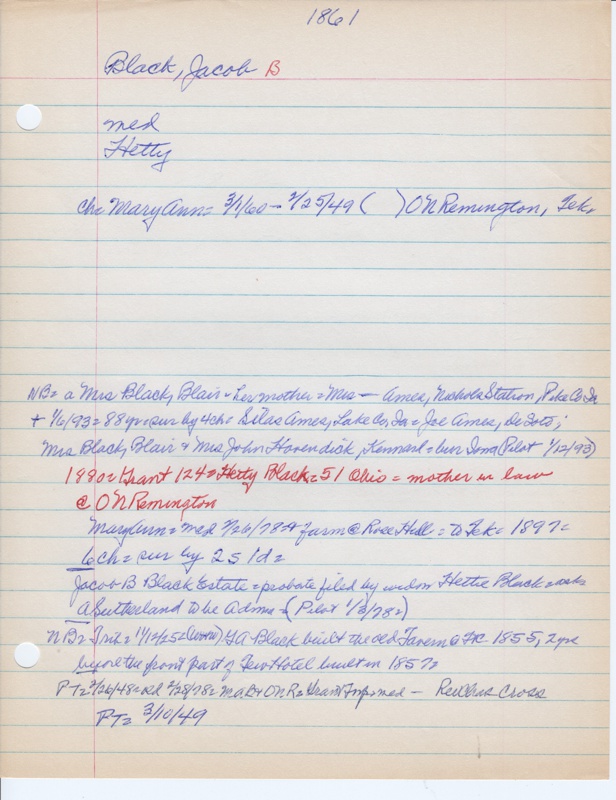 1861
Black, Jacob B
med
Hetty
ch= Mary Ann= 3/1/60 - 2/25/49 ( ) O N Remington, Tek.
NB= a Mrs Black, Blair = her mother = Mrs — Ames, Nichols Station, Pike Co
+ 1/6/93= 88 yr= sur by 4 ch= Silas Ames, Lake Co, Ia= Joe Ames, De Soto;
Mrs Black, Blair + Mrs John Havendick, Kennard= bur Iowa (Pilot 1/12/93)
1880= Grant 124= Hetty Black= 51 Ohio = mother in law
@ O N Remington
Mary Ann= med 7/26/78 + farm @ Rose Hill = to Tek= 1897=
6 ch= sur by 2 s 1 d=
Jacob B Black Estate = probate filed by widow Hettie Black = asks
A Sutherland to be Admr= (Pilot 1/3/78=)
NB= Trib= 11/12/25= Black built the old Tavern @ 1855, 2 yrs
before the front part of Hotel built in 1857=
PT= 2/26/48= old 2/28/78= O N R= Grant med — Cross
PT= 3/10/49